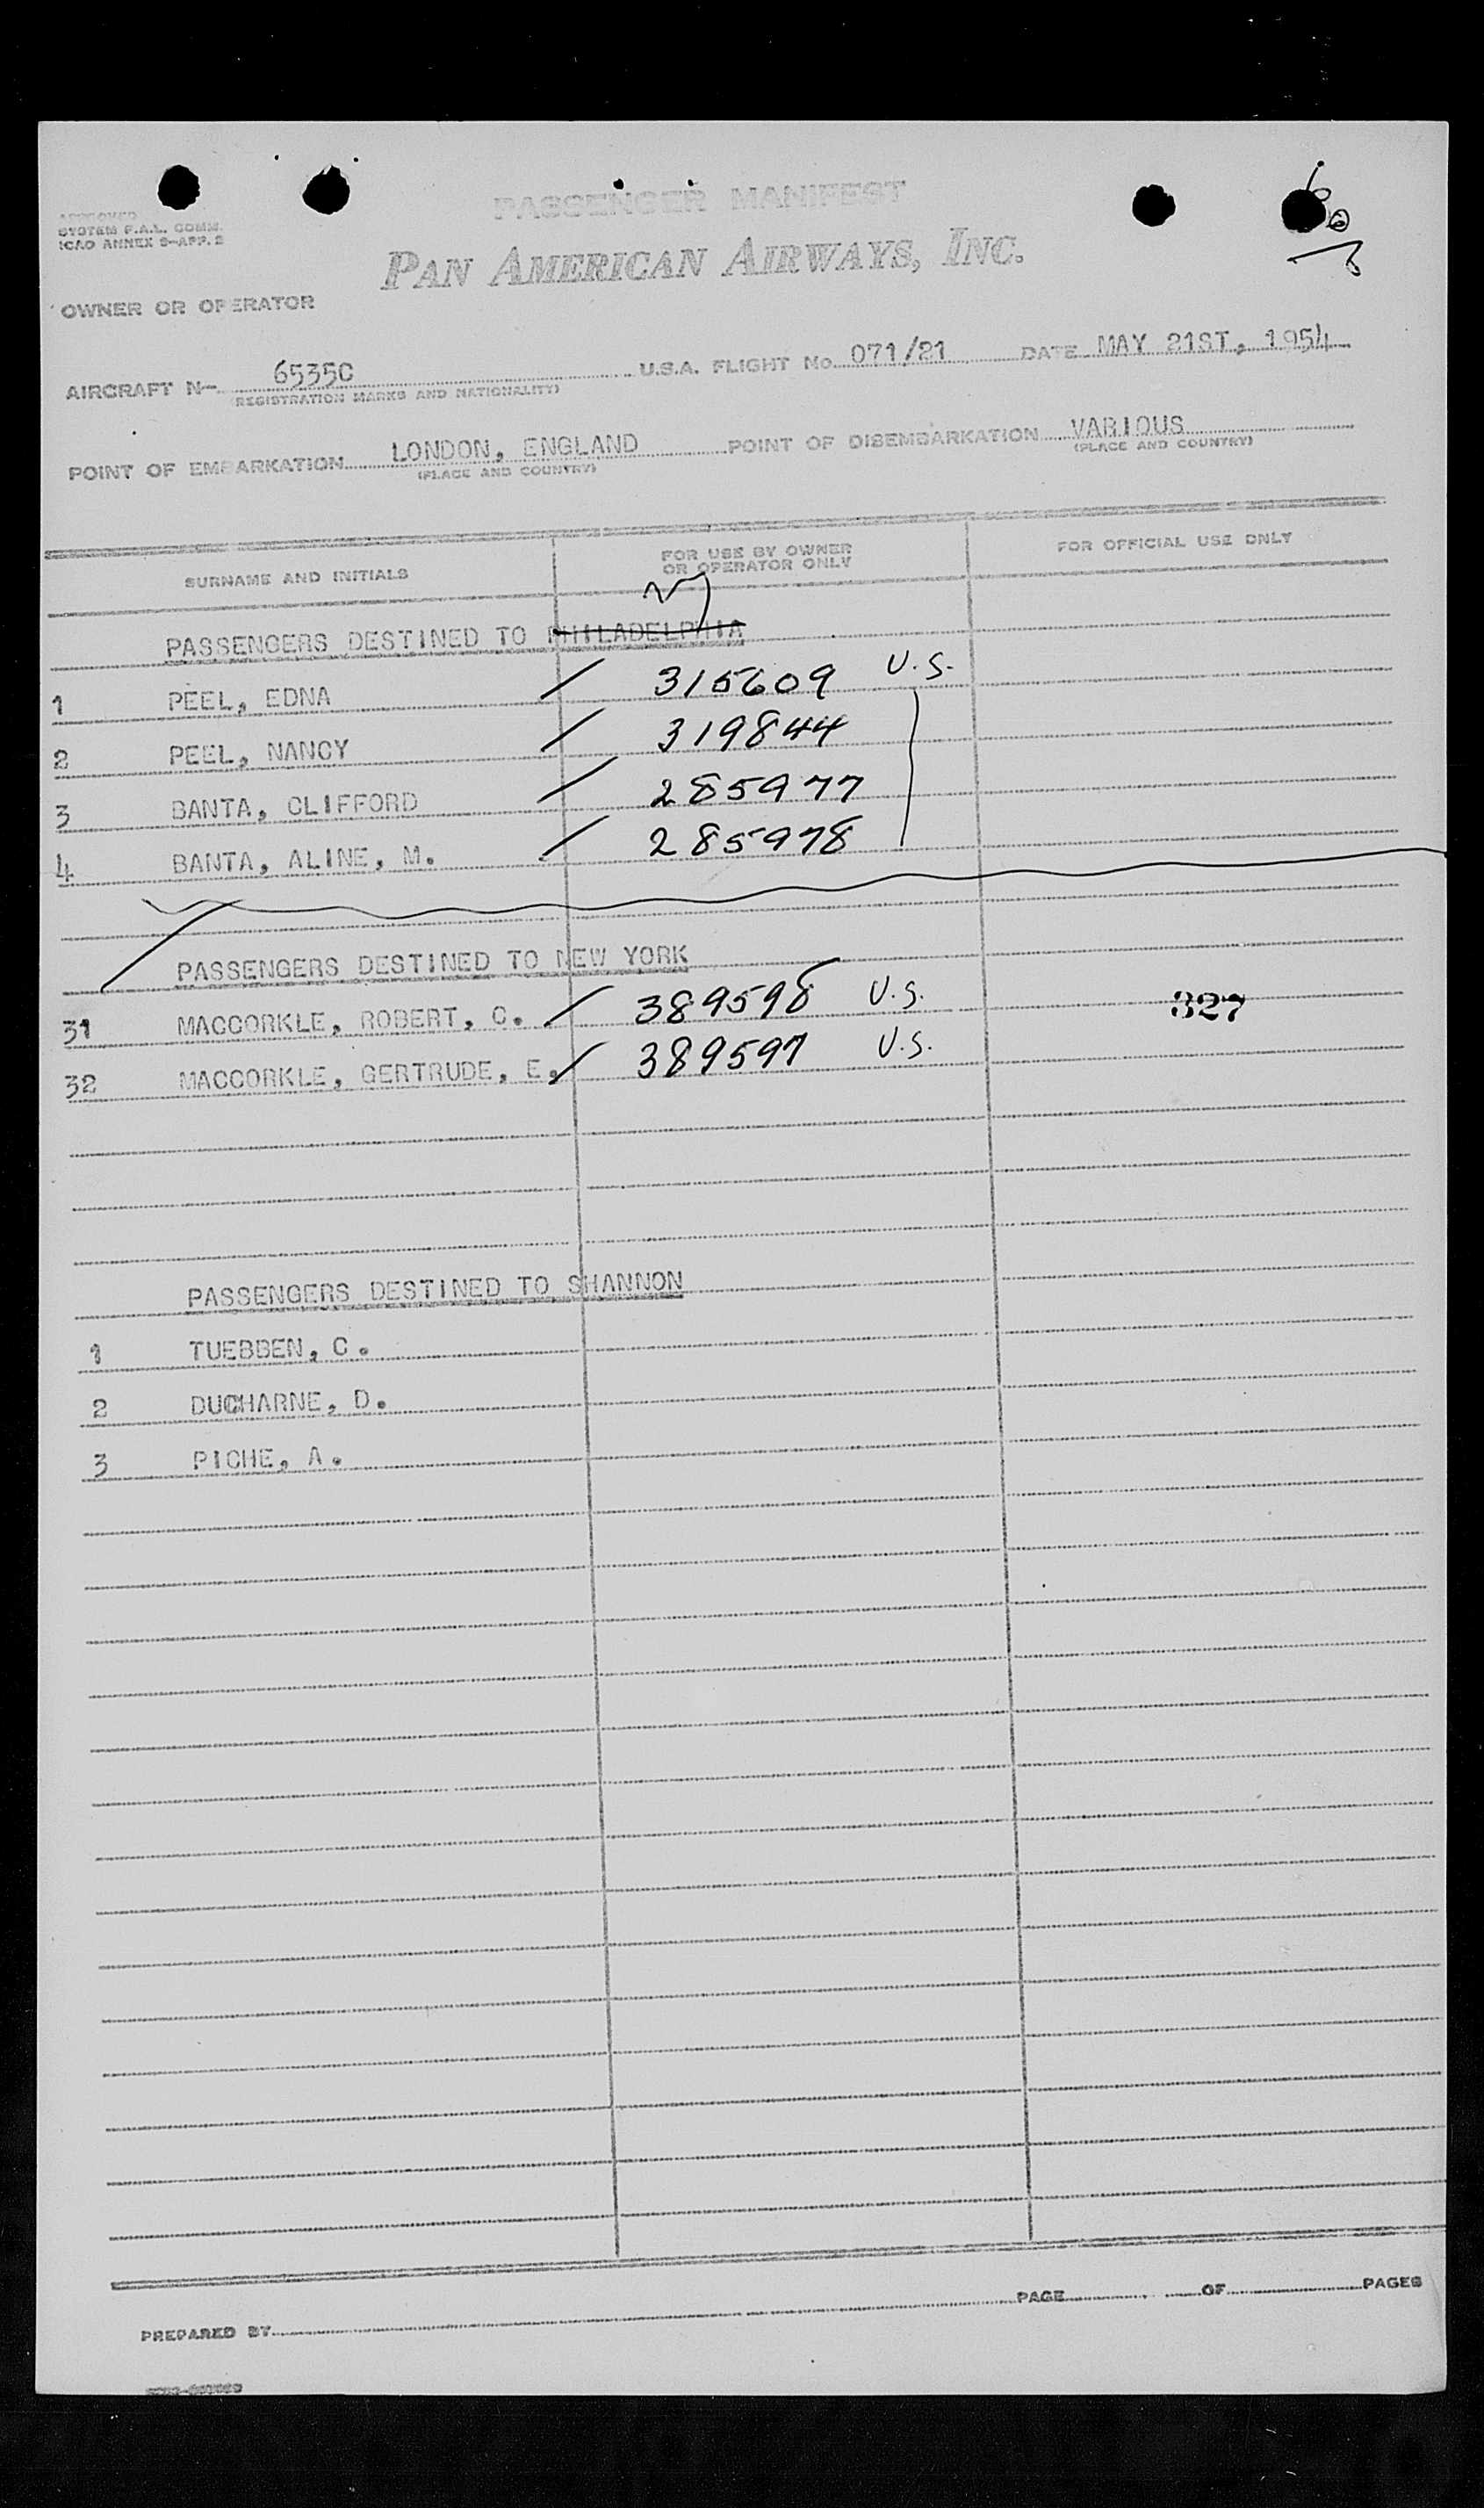 PASSENGER MANIFEST
APPROVED
SYSTEM F.A.L. COMM.
ICAO ANNEX 9-APP. 2
PAN AMERICAN AIRWAYS, INC.
OWNER OR OPERATOR
AIRCRAFT N- 6535C U.S.A. FLIGHT No. 071/21 DATE MAY 21ST, 1954
(REGISTRATION MARKS AND NATIONALITY)
POINT OF EMBARKATION LONDON, ENGLAND POINT OF DISEMBARKATION VARIOUS
(PLACE AND COUNTRY) (PLACE AND COUNTRY)
SURNAME AND INITIALS FOR USE BY OWNER OR OPERATOR ONLY FOR OFFICIAL USE ONLY
NY
PASSENGERS DESTINED TO PHILADELPHIA
1 PEEL, EDNA / 315609 U.S.
2 PEEL, NANCY / 319844
3 BANTA, CLIFFORD / 285977
4 BANTA, ALINE, M. / 285978
PASSENGERS DESTINED TO NEW YORK
31 MACCORKLE, ROBERT, C. / 389598 U.S. 327
32 MACCORKLE, GERTRUDE, E. / 389597 U.S.
PASSENGERS DESTINED TO SHANNON
1 TUEBBEN, C.
2 DUCHARNE, D.
3 PICHE, A.
PREPARED BY PAGE OF PAGES